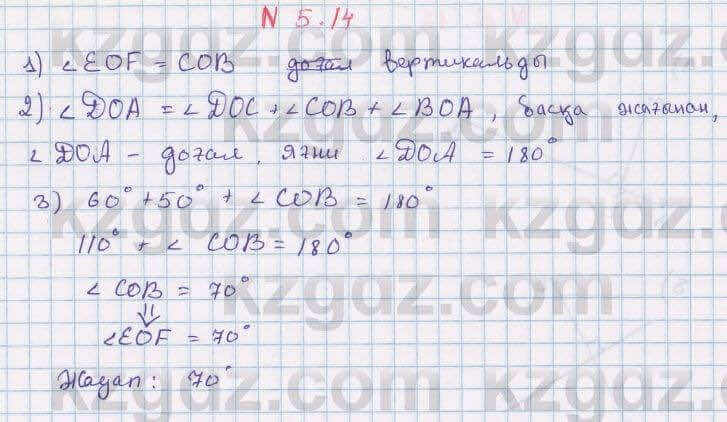 N 5.14
1) ∠EOF = COB вертикальды
2) ∠DOA = ∠DOC + ∠COB + ∠BOA, басқа жағынан,
∠DOA - доғал, яғни ∠DOA = 180°
3) 60° + 50° + ∠COB = 180°
110° + ∠ COB = 180°
∠ COB = 70°
⇓
∠EOF = 70°
Жауап: 70°
kzgdz.com
kzgdz.com
kzgdz.com
kzgdz.com
kzgdz.com